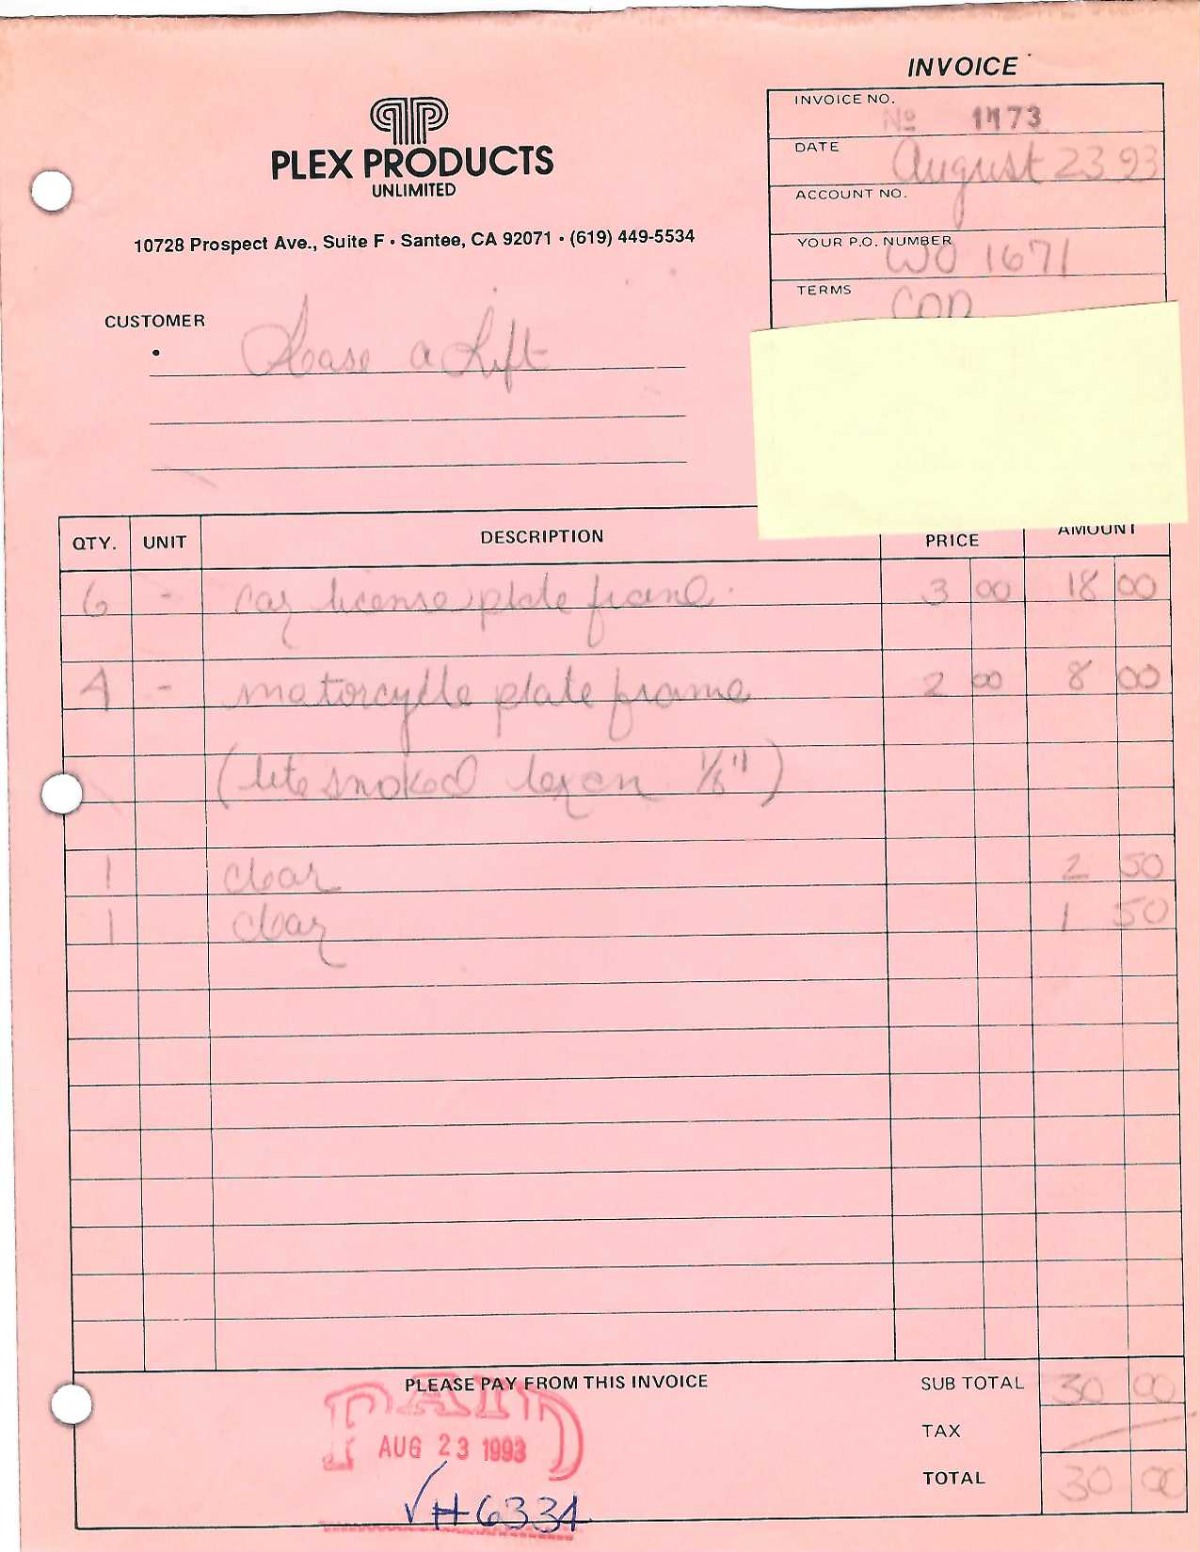 INVOICE
PLEX PRODUCTS
UNLIMITED
10728 Prospect Ave., Suite F • Santee, CA 92071 • (619) 449-5534
INVOICE NO. Nº 1173
DATE August 23 93
ACCOUNT NO.
YOUR P.O. NUMBER WO 1671
TERMS COD
CUSTOMER
• Lease a Lift
QTY. UNIT DESCRIPTION PRICE AMOUNT
6 - car license plate frame. 3 00 18 00
4 - motorcylle plate frame 2 00 8 00
(lite smoked lexan 1/8")
1 clear 2 50
1 clear 1 50
PLEASE PAY FROM THIS INVOICE
SUB TOTAL 30 00
TAX
TOTAL 30 00
PAID
AUG 23 1993
√# 6334